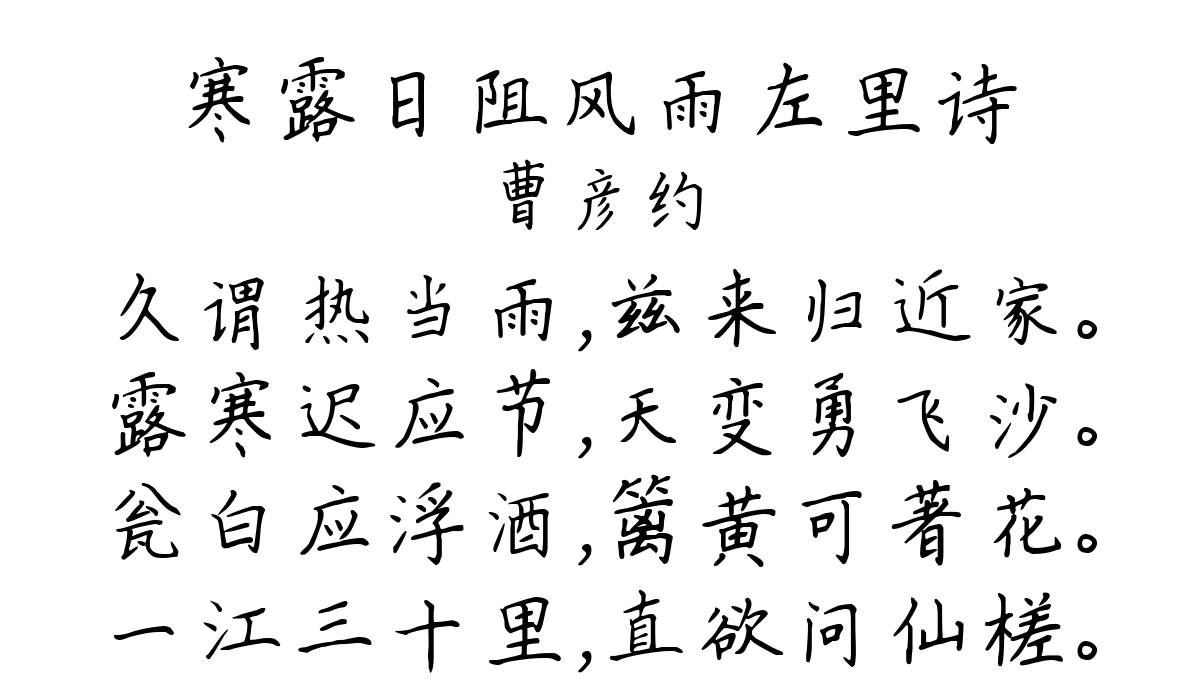 寒露日阻风雨左里诗
曹彦约
久谓热当雨,兹来归近家。
露寒迟应节,天变勇飞沙。
瓮白应浮酒,篱黄可著花。
一江三十里,直欲问仙槎。